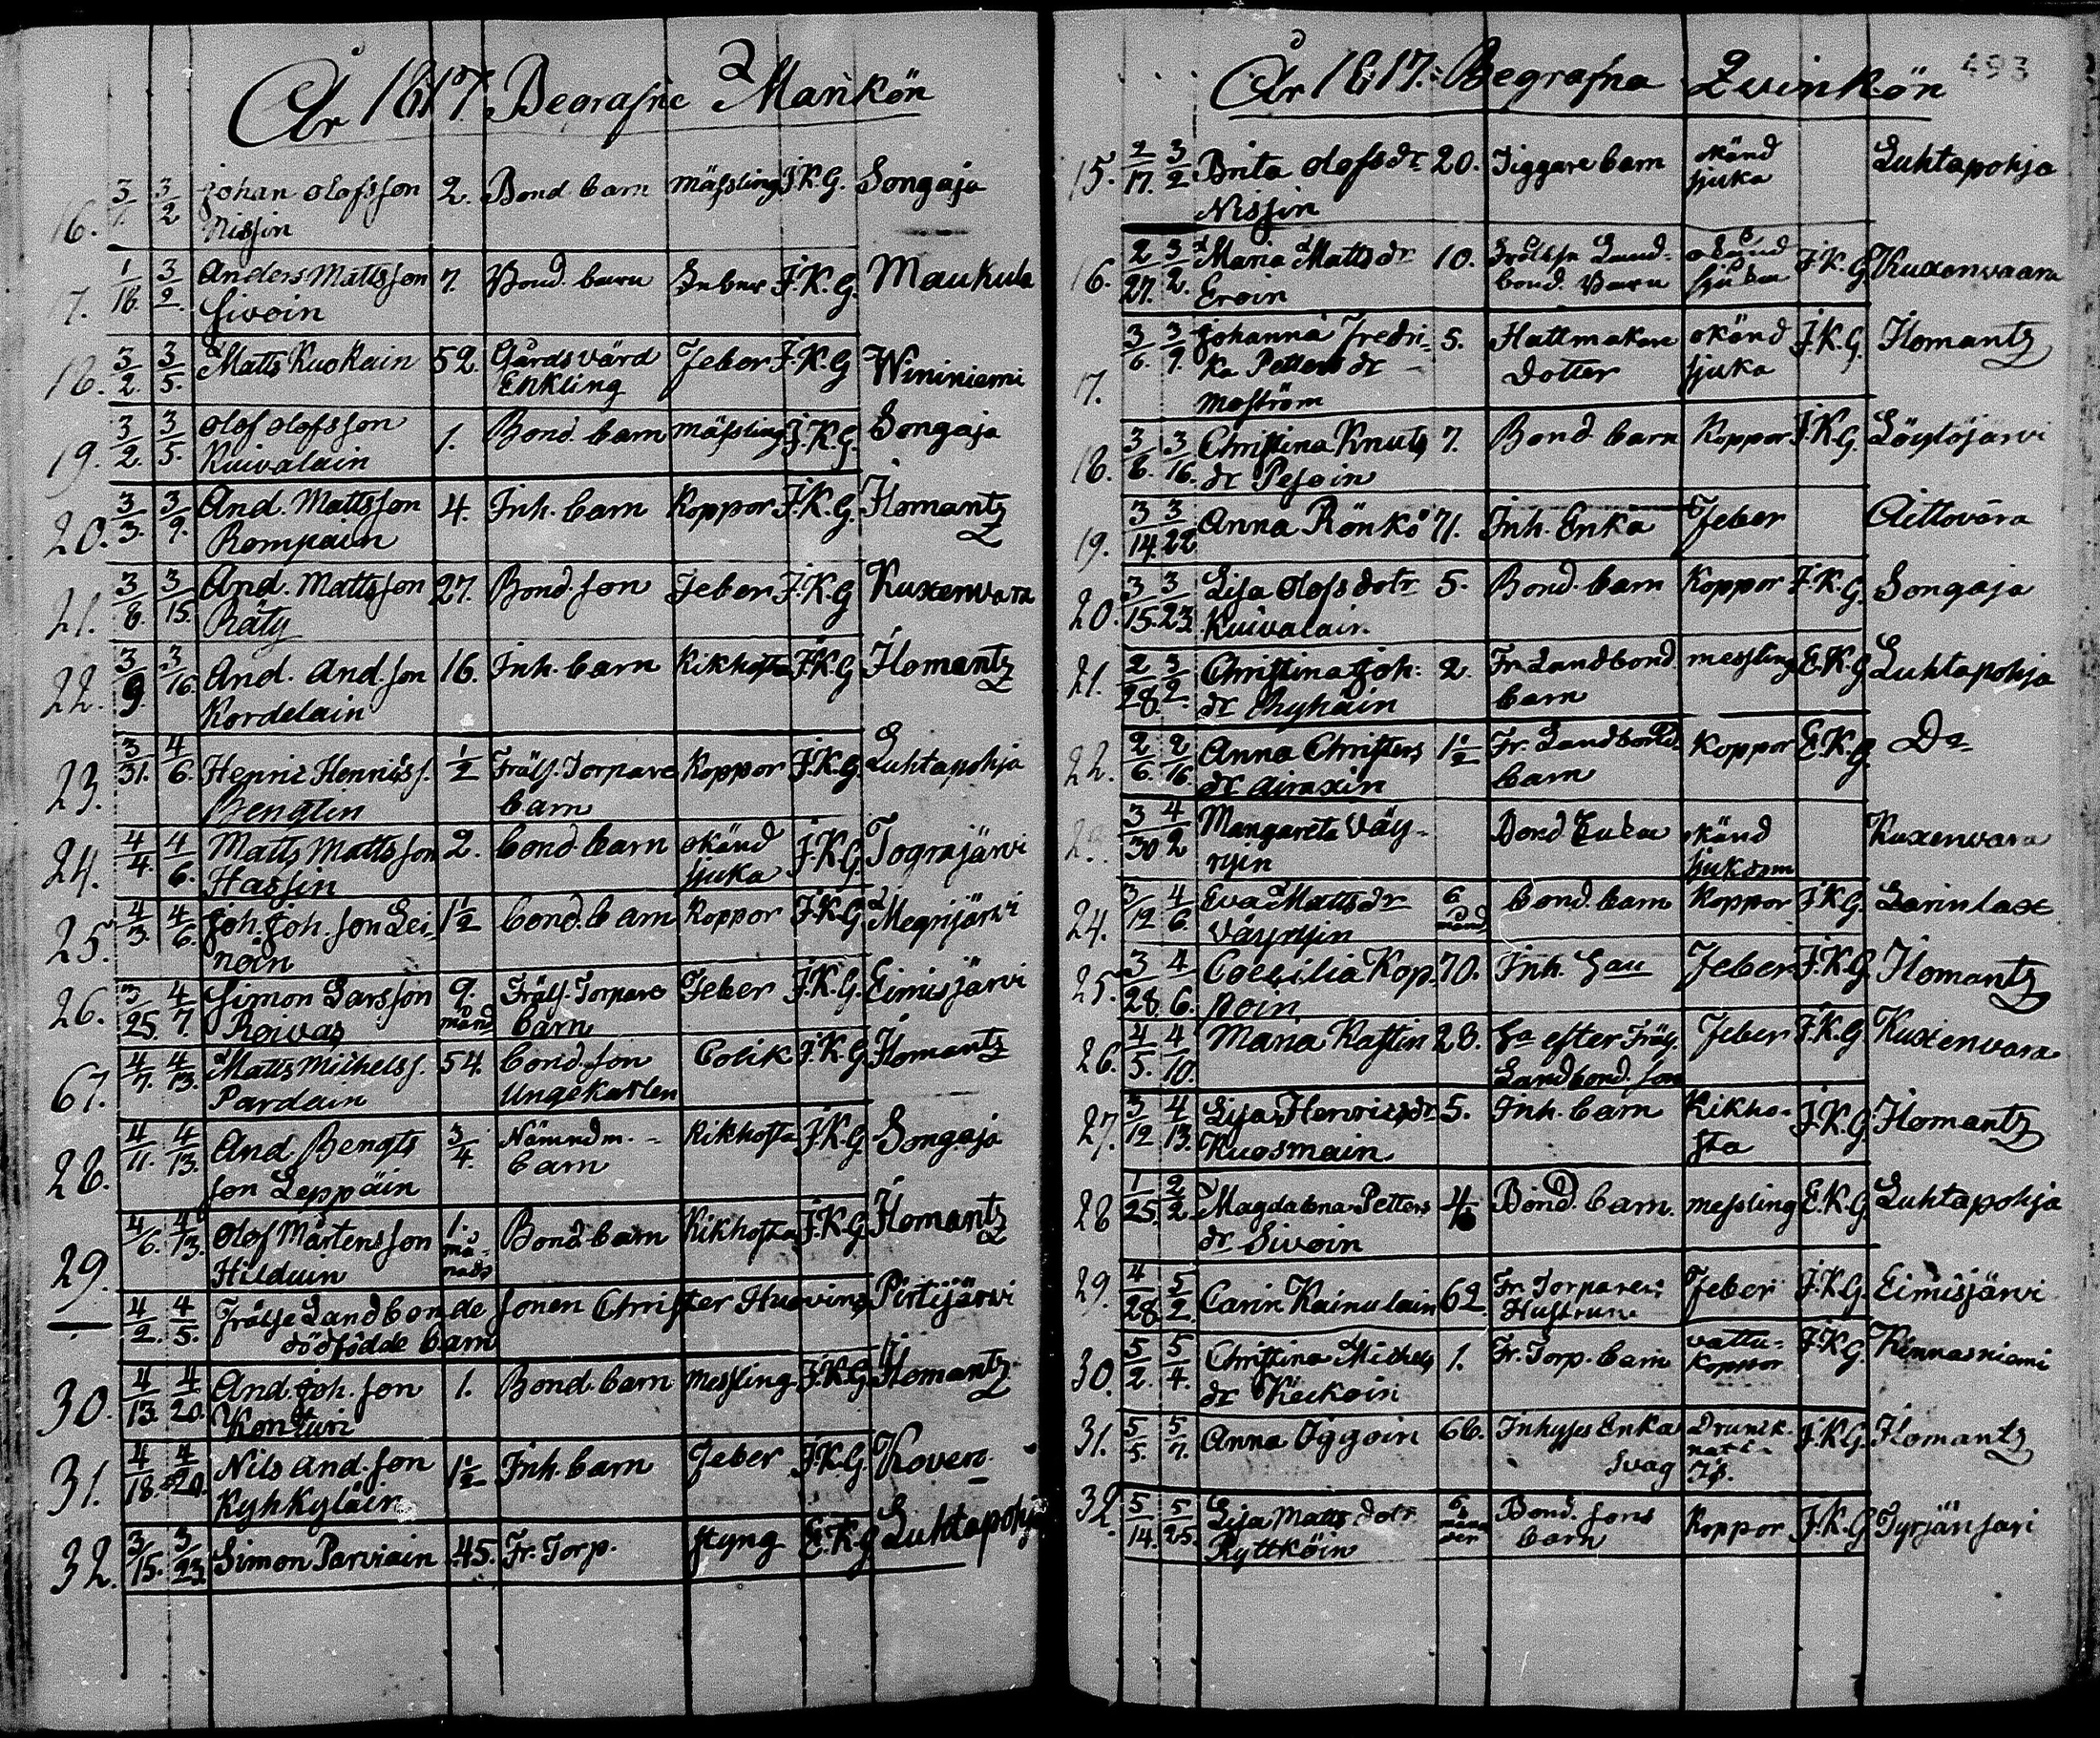 År 1817. Begrafne Mankön
16. 3/1. 3/2 Johan Olofsson 2. Bond. barn mässling J.K.G. Songaja
Nissin
17. 1/18. 3/2. Anders Mattsson 7. Bond. barn Feber J.K.G. Maukula
Sivoin
18. 3/2. 3/5. Matts Kuokain 52. Gårdsvärd Feber J.K.G Wininiemi
Enkling
19. 3/2. 3/5. Olof Olofsson 1. Bond. barn mässling J.K.G. Songaja
Kuivalain
20. 3/3. 3/9. And. Mattsson 4. Inh. barn Koppor J.K.G. Ilomantz
Rompain
21. 3/8. 3/15. And. Mattsson 27. Bond. son Feber J.K.G Kuxenvara
Räty
22. 3/9. 3/16. And. And.son 16. Inh. barn Kikhosta J.K.G Ilomantz
Kordelain
23. 3/31. 4/6. Henric Henricss. 1/2 Fräls. Torpare Koppor J.K.G. Luhtapohja
Bengtin barn
24. 4/4. 4/6. Matts Mattsson 2. bond. barn okänd J.K.G. Tograjärvi
Hassin sjuka
25. 4/3. 4/6. Joh. Joh. son Lei- 1 1/2 bond. barn Koppor J.K.G. Megrijärvi
noin
26. 3/25. 4/7. Simon Larsson 9. Fräls. Torpare Feber J.K.G. Eimisjärvi
Roivas månd barn
67. 4/7. 4/13. Matts Michelss. 54. bond. son Colik J.K.G Ilomantz
Pardain Ungekarlen
28. 4/11. 4/13. And Bengts 3/4. Nämndm. Kikhosta J.K.G. Songaja
son Leppäin barn
29. 4/6. 4/13. Olof Mårtensson 1. Bond. barn Kikhosta J.K.G. Ilomantz
Hilduin må-
nads
4/2. 4/5. Frälse Landbonde sonen Christer Hurvins Pirtijärvi
dödfödde barn
30. 4/13. 4/20. And. Joh. son 1. Bond. barn messling J.K.G. Ilomantz
Konturi
31. 4/18. 4/20. Nils And. son 1 1/2 Inh. barn Feber J.K.G Kovero
Kyhkyläin
32. 3/15. 3/23. Simon Parviain 45. Fr. Torp. styng E.K.G Luhtapohja
År 1817. Begrafna Qvinkön 493
15. 2/17. 3/2 Brita Olofsdr 20. Tiggare barn okänd Luhtapohja
Nissin sjuka
16. 2/27. 3/2. Maria Mattsdr 10. Frälse Land- okänd J.K.G. Kuxenvaara
Eroin bond. barn sjuka
17. 3/6. 3/9. Johanna Fredri- 5. Hattmakare okänd J.K.G. Ilomantz
ka Petters dr dotter sjuka
Moström
18. 3/6. 3/16. Christina Knuts 7. Bond. barn Koppor J.K.G. Löytöjärvi
dr Pesoin
19. 3/14. 3/22 Anna Rönkö 71. Inh. Enka Feber Aittovara
20. 3/15. 3/23. Lisa Olofsdotr 5. Bond. barn Koppor J.K.G. Songaja
Kuivalain.
21. 2/28. 3/2. Christina Joh. 2. Fr. Landbond messling E.K.G Luhtapohja
dr Ryhäin barn
22. 2/6. 2/16. Anna Christers 1 1/2 Fr. Landbond. Koppor E.K.G. Do
dr Airaxin barn
3/30 4/2 Margareta Väy- Bond Enka okänd Kuxenvara
rysin sjukdom
24. 3/12 4/6. Eva Mattsdr 6 bond. barn Koppor J.K.G. Larinlax
Väyrysin månd
25. 3/28. 4/6. Coecilia Kop- 70. Inh. Feber J.K.G. Ilomantz
poin
26. 4/5. 4/10. Maria Kastin 28. efter Fräls. Feber J.K.G Kuxenvara
Landbond. son
27. 3/12 4/13. Lisa Henricsdr 5. Inh. barn Kikho- J.K.G. Ilomantz
Kuosmain sta
28 1/25. 2/2. Magdalena Petters 4 Bond. barn. messling E.K.G. Luhtapohja
dr Sivoin
29. 4/28. 5/2. Carin Kainulain 62. Fr. Torparens Feber J.K.G. Eimisjärvi
Hustru
30. 5/2. 5/4. Christina Michels 1. Fr. Torp. barn vattu- J.K.G. Kinnasniemi
dr Keckoin koppor
31. 5/5. 5/7. Anna Oggoin 66. Inhyses Enka Drunk- J.K.G. Ilomantz
svag nat i
32. 5/14. 5/25. Lisa Matts dotr 6 Bond. sons Koppor J.K.G Tyrjänsari
Ryttköin månader barn